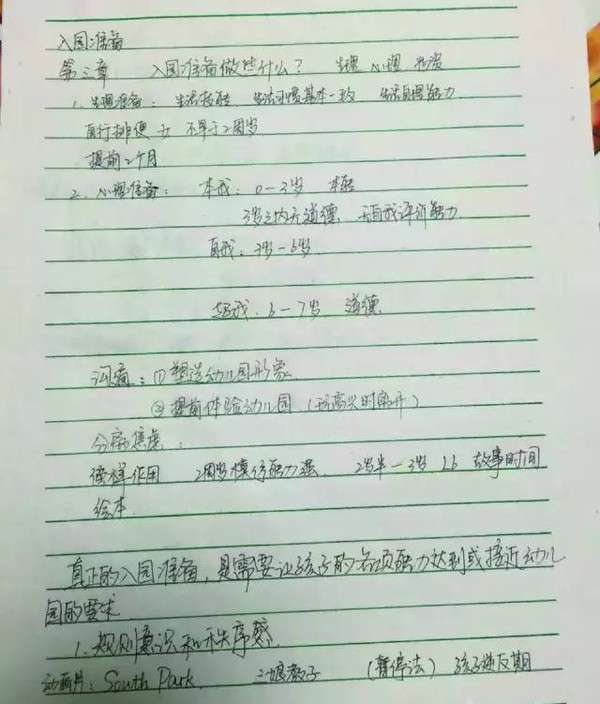 入园准备
第三章 入园准备做些什么? 生理 心理
1. 生理准备: 生活技能 生活习惯基本一致 生活自理能力
自行排便 女 不早于2周岁
提前2个月
2. 心理准备: 本我: 0-3岁 本能
3岁之内无道德, 无自我评价能力
自我: 3岁-6岁
超我: 6-7岁 道德
沟通: ①塑造幼儿园形象
②提前体验幼儿园 (玩高兴时离开)
分离焦虑:
榜样作用 2周岁模仿能力强 2岁半-3岁 故事时间
绘本
真正的入园准备, 是需要让孩子的各项能力达到或接近幼儿
园的要求
1. 规则意识和秩序感
动画片: South Park (暂停法) 孩子叛反期